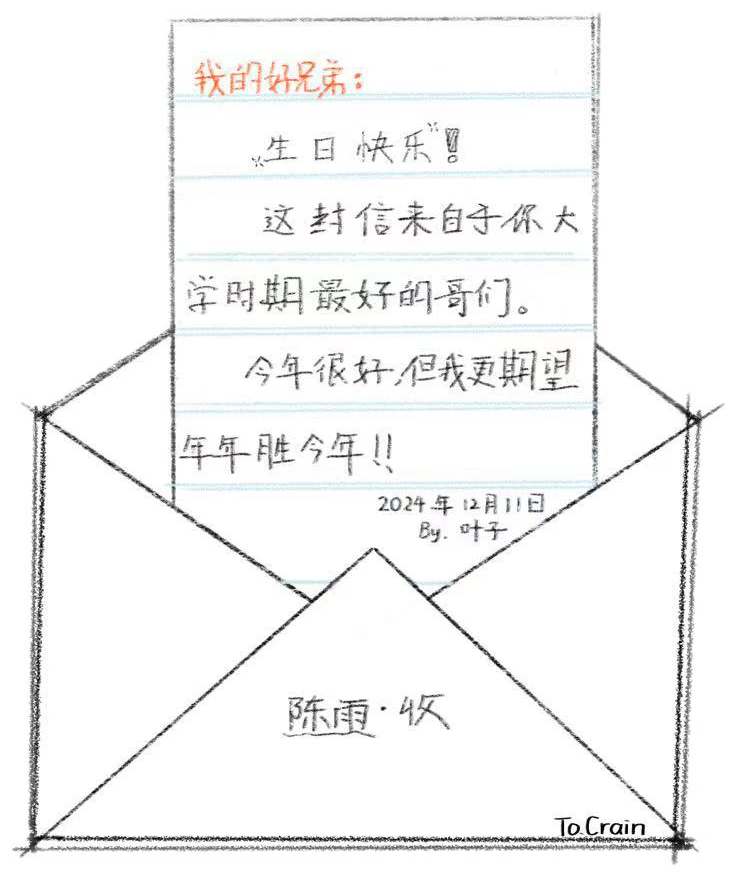 我的好兄弟：
“生日快乐”！
这封信来自于你大
学时期最好的哥们。
今年很好，但我更期望
年年胜今年！！
2024年12月11日
By. 叶子
陈雨·收
To Crain